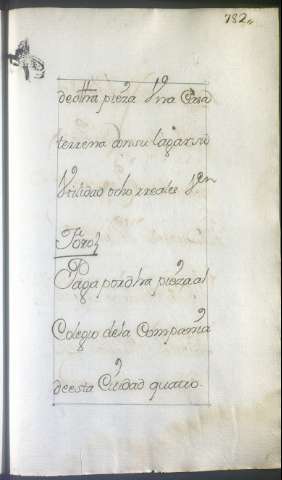 782
de otra pieza Una Casa
terrena con su lagar su
Utilidad ocho rreales Vn
Foros
Paga por dha pieza al
Colegio de la Compania
de esta Ciudad quatro